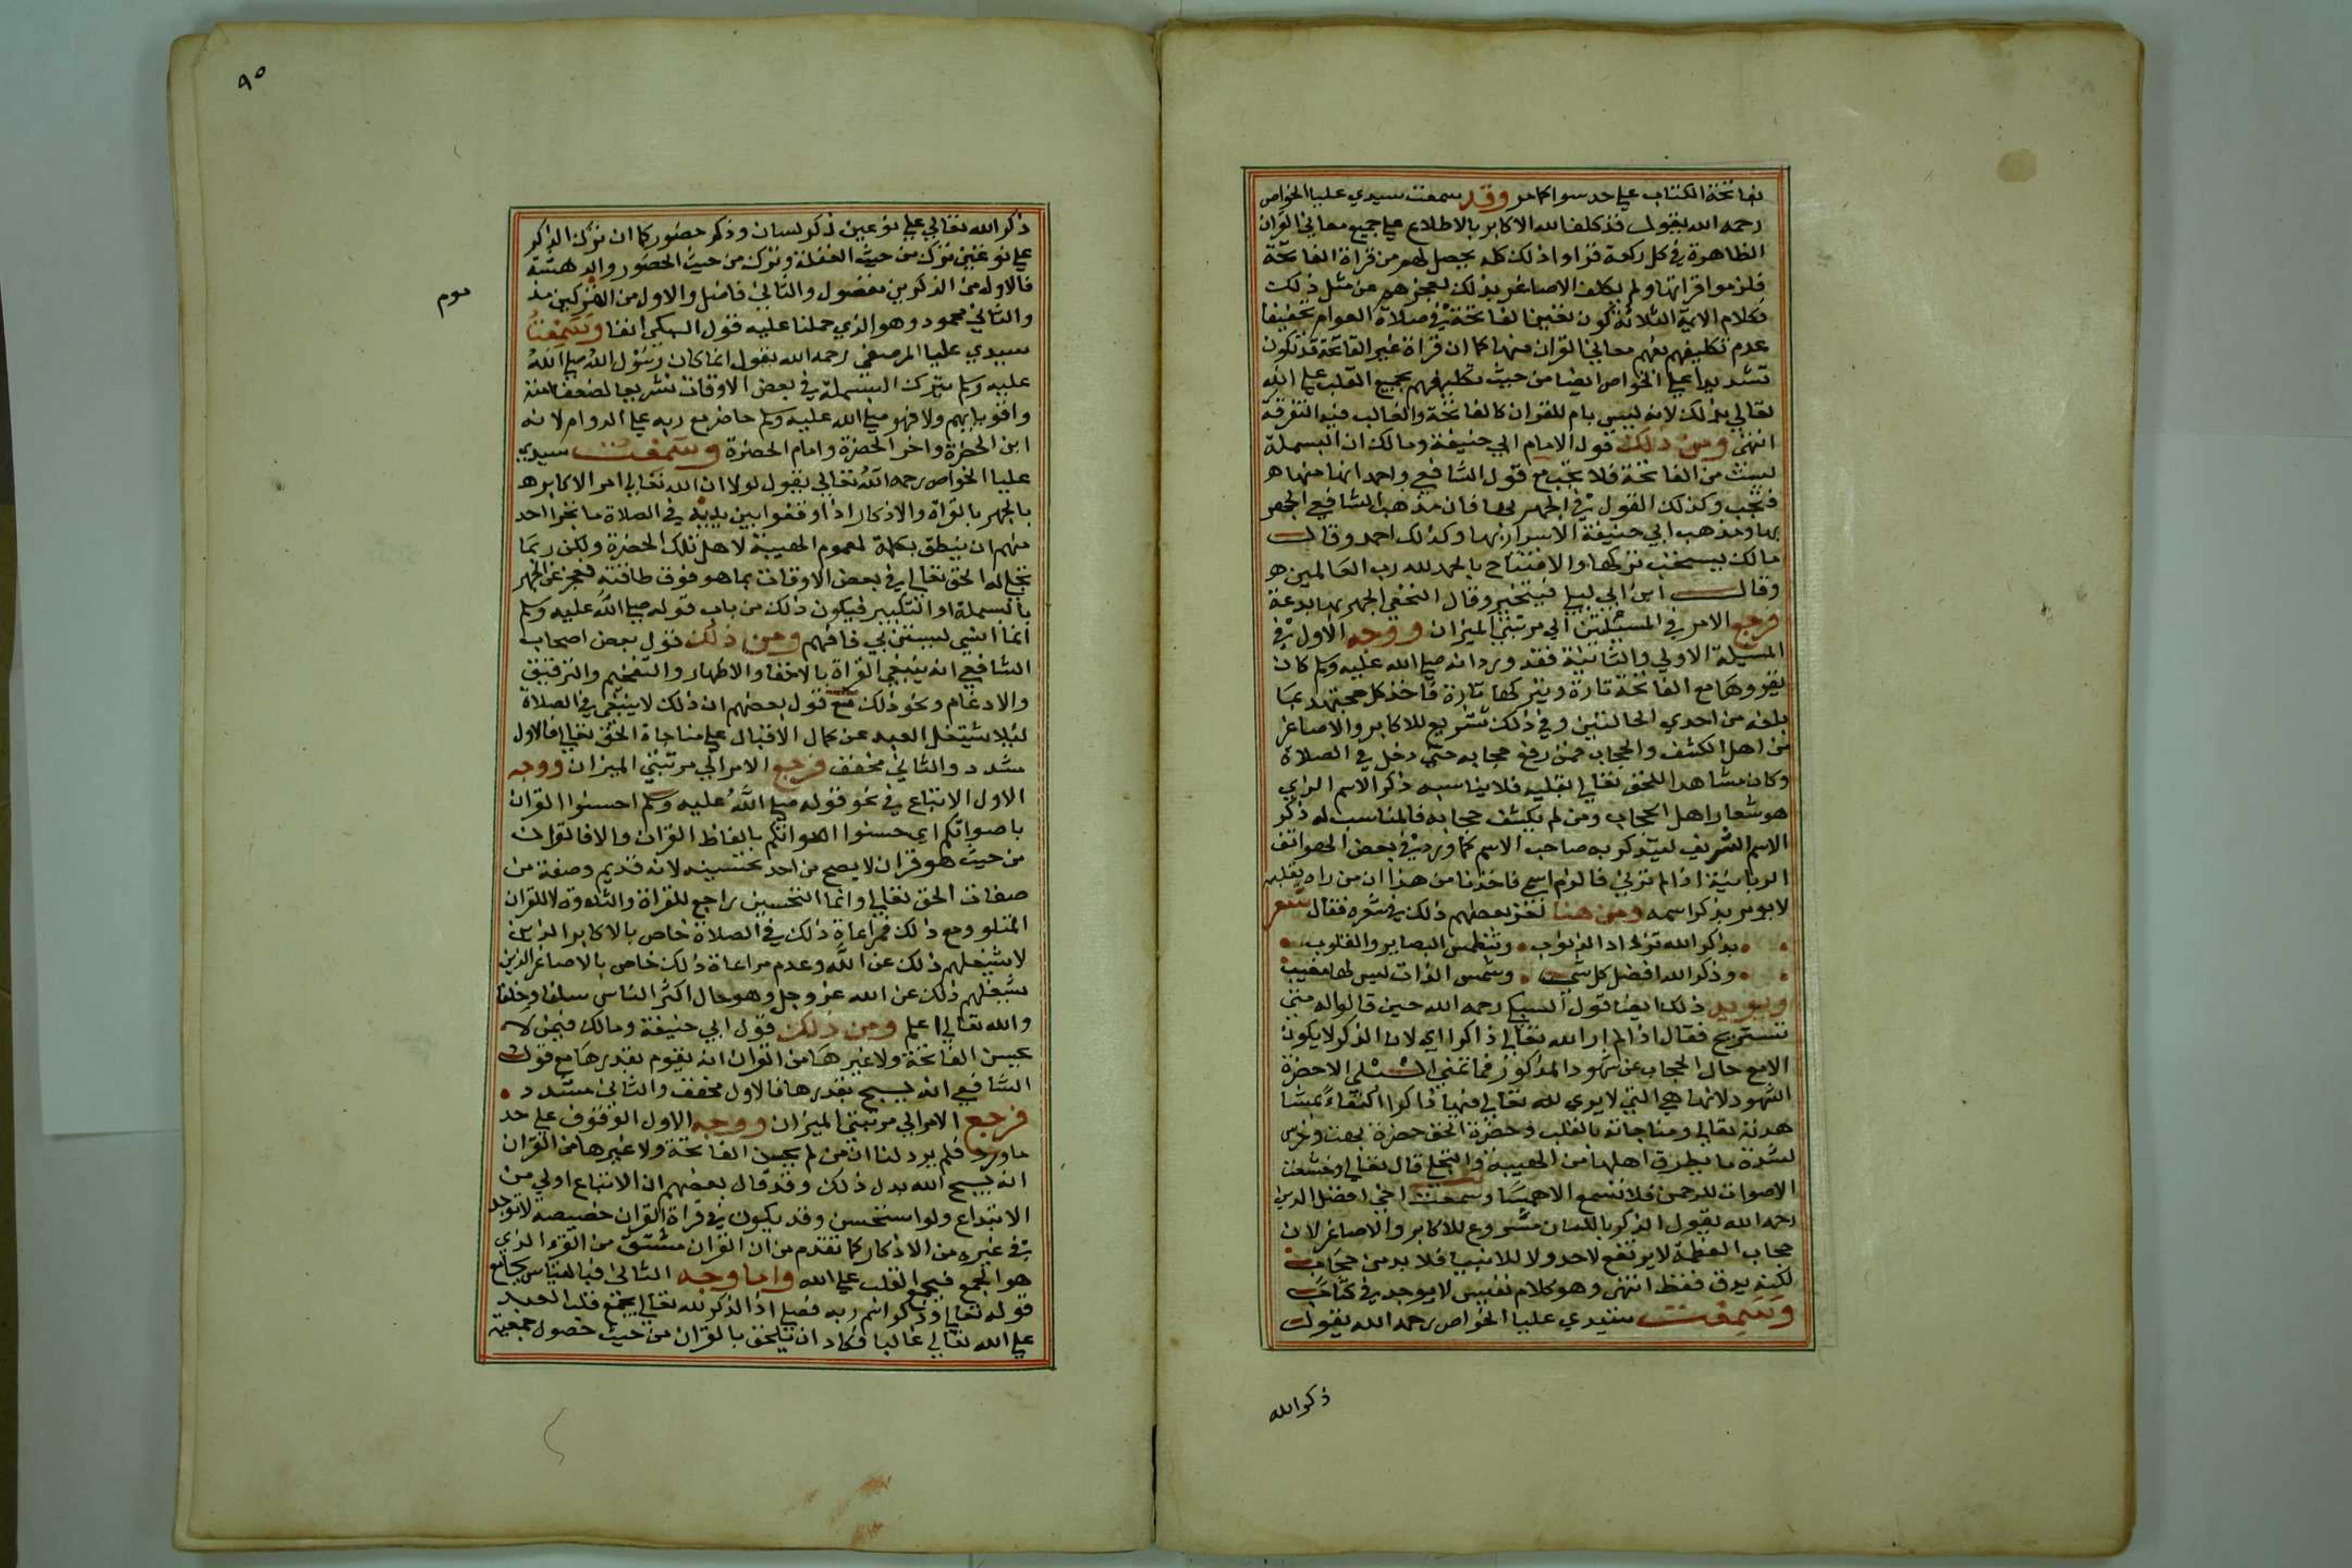 بفاتحة الكتاب علي حد سوا كامر وقد سمعت سيدي عليا الخواص
رحمه الله يقول قد كلف الله الاكابر بالاطلاع علي جميع معاني القران
الظاهرة في كل ركعة قراوا ذلك كله يحصل لهم من قراة الفاتحة
فلزموا قراتها ولم يكلف الاصاغر بذلك لعجزهم عن مثل ذلك
فكلام الايمة الثلاثة لكون تعيين الفاتحة في صلاة العوام تخفيفا
عدم تكليفهم بفهم معاني القران منها كما ان قراة غير الفاتحة قد تكون
تشديدا علي الخواص ايضا من حيث تكليفهم بجمع القلب علي الله
تعالي بذلك لانه ليس بام للقران كالفاتحة والغالب فيه التفرقة
انتهي ومن ذلك قول الامام ابي حنيفة ومالك ان البسملة
ليست من الفاتحة فلا تجب مع قول الشافعي واحمد انها منها
فتجب وكذلك القول في الجهر بها فان مذهب الشافعي الجهر
بها ومذهب ابي حنيفة الاسرار بها وكذلك احمد وقال
مالك يستحب تركها والافتتاح بالحمد لله رب العالمين
وقال ابن ابي ليلي يتخير وقال النخعي الجهر بها بدعة
فرجع الامر في المسئلتين الي مرتبتي الميزان ووجه الاول في
المسيلة الاولي والثانية فقد ورد انه صلي الله عليه وسلم كان
يقروها مع الفاتحة تارة ويتركها تارة فاخذ كل مجتهد بما
بلغه من احدي الحالتين وفي ذلك تشريع للاكابر والاصاغر
من اهل الكشف والحجاب فمن رفع حجابه حتي دخل في الصلاة
وكان مشاهدا للحق تعالي بقلبه فلا يناسبه ذكر الاسم الذي
هو شعار اهل الحجاب ومن لم يكشف حجابه فالمناسب له ذكر
الاسم الشريف ليتذكر به صاحب الاسم كما ورد في بعض الهواتف
الربانية اذا لم ترني فالزم اسمي فاخذنا من هذا ان من راه بقلبه
لا يومر بذكر اسمه ومن هنا لغز بعضهم ذلك في شعره فقال شعر
بذكر الله تزداد الذنوب • وتنطمس البصاير والقلوب
وذكر الله افضل كل شي • وشمس الذات ليس لها مغيب
ويويد ذلك ايضا قول الشبلي رحمه الله حين قالوا له متي
تستريح فقال اذا لم ار لله تعالي ذاكرا اي لان الذكر لا يكون
الا مع حال الحجاب عن شهود المذكور فما تمني الشبلي الا حضرة
الشهود لانها هي التي لا يري لله تعالي فيها ذاكرا اكتفاء بمشا
هدته تعالي ومناجاته بالقلب وحضرة الحق حضرة بهت وخرس
لشدة ما يطرق اهلها من الهيبة والتجلي قال تعالي وخشعت
الاصوات للرحمن فلا تسمع الا همسا وسمعت اخي افضل الدين
رحمه الله يقول الذكر باللسان مشروع للاكابر والاصاغر لان
حجاب العظمة لا يرتفع لاحد ولا للانبيا فلا بد من حجاب
لكنه يدق فقط انتهي وهو كلام نفيس لا يوجد في كتاب
وسمعت سيدي عليا الخواص رحمه الله يقول
ذكر الله
٩٥
ذكر الله تعالي علي نوعين ذكر لسان وذكر حضور كما ان ترك الذكر
علي نوعين ترك من حيث الغفلة وترك من حيث الحضور والدهشة
فالاول من الذكرين مفضول والثاني فاضل والاول من التركين مذ
موم
والثاني محمود وهو الذي حملنا عليه قول الشبلي انفا وسمعت
سيدي عليا المرصفي رحمه الله يقول انما كان رسول الله صلي الله
عليه وسلم يترك البسملة في بعض الاوقات تشريعا لضعفا امته
واقويايهم والا فهو صلي الله عليه وسلم حاضر مع ربه علي الدوام لانه
ابن الحضرة واخو الحضرة وامام الحضرة وسمعت سيدي
عليا الخواص رحمه الله تعالي يقول لولا ان الله تعالي امر الاكابر
بالجهر بالقراة والاذكار اذا وقفوا بين يديه في الصلاة ما تجرا احد
منهم ان ينطق بكلمة لعموم الهيبة لاهل تلك الحضرة ولكن ربما
تجلي له الحق تعالي في بعض الاوقات بما هو فوق طاقته فعجز عن الجهر
بالبسملة او التكبير فيكون ذلك من باب قوله صلي الله عليه وسلم
انما انسي ليستن بي فافهم ومن ذلك قول بعض اصحاب
الشافعي انه ينبغي القراة بالاخفا والاظهار والتفخيم والترقيق
والادغام ونحو ذلك مع قول بعضهم ان ذلك لا ينبغي في الصلاة
ليلا يشتغل العبد عن كمال الاقبال علي مناجاة الحق تعالي فالاول
مشدد والثاني مخفف فرجع الامر الي مرتبتي الميزان ووجه
الاول الاتباع في نحو قوله صلي الله عليه وسلم احسنوا القران
باصواتكم اي حسنوا اصواتكم بالفاظ القران والا فالقران
من حيث هو قران لا يصح من احد تحسينه لانه قديم وصفة من
صفات الحق تعالي وانما التحسين راجع للقراة والتلاوة لا للقران
المتلو ومع ذلك فمراعاة ذلك في الصلاة خاص بالاكابر الذين
لا يشغلهم ذلك عن الله وعدم مراعاة ذلك خاص بالاصاغر الذين
يشغلهم ذلك عن الله عز وجل وهو حال اكثر الناس سلفا وخلفا
والله تعالي اعلم ومن ذلك قول ابي حنيفة ومالك فيمن لا
يحسن الفاتحة ولا غيرها من القران انه يقوم بقدرها مع قول
الشافعي انه يسبح بقدرها فالاول مخفف والثاني مشدد •
فرجع الامر الي مرتبتي الميزان ووجه الاول الوقوف علي حد
ما ورد فلم يرد لنا ان من لم يحسن الفاتحة ولا غيرها من القران
انه يسبح الله بدل ذلك وقد قال بعضهم ان الاتباع اولي من
الابتداع ولو استحسن وقد يكون في قراة القران خصيصة لا توجد
في غيره من الاذكار كما تقدم من ان القران مشتق من القرء الذي
هو الجمع فيجمع القلب علي الله واما وجه الثاني فبالقياس بجامع
قوله تعالي وذكر اسم ربه فصلي اذ الذكر لله تعالي يجمع قلب العبد
علي الله تعالي غالبا فكاد ان يلحق بالقران من حيث حصول جمعية